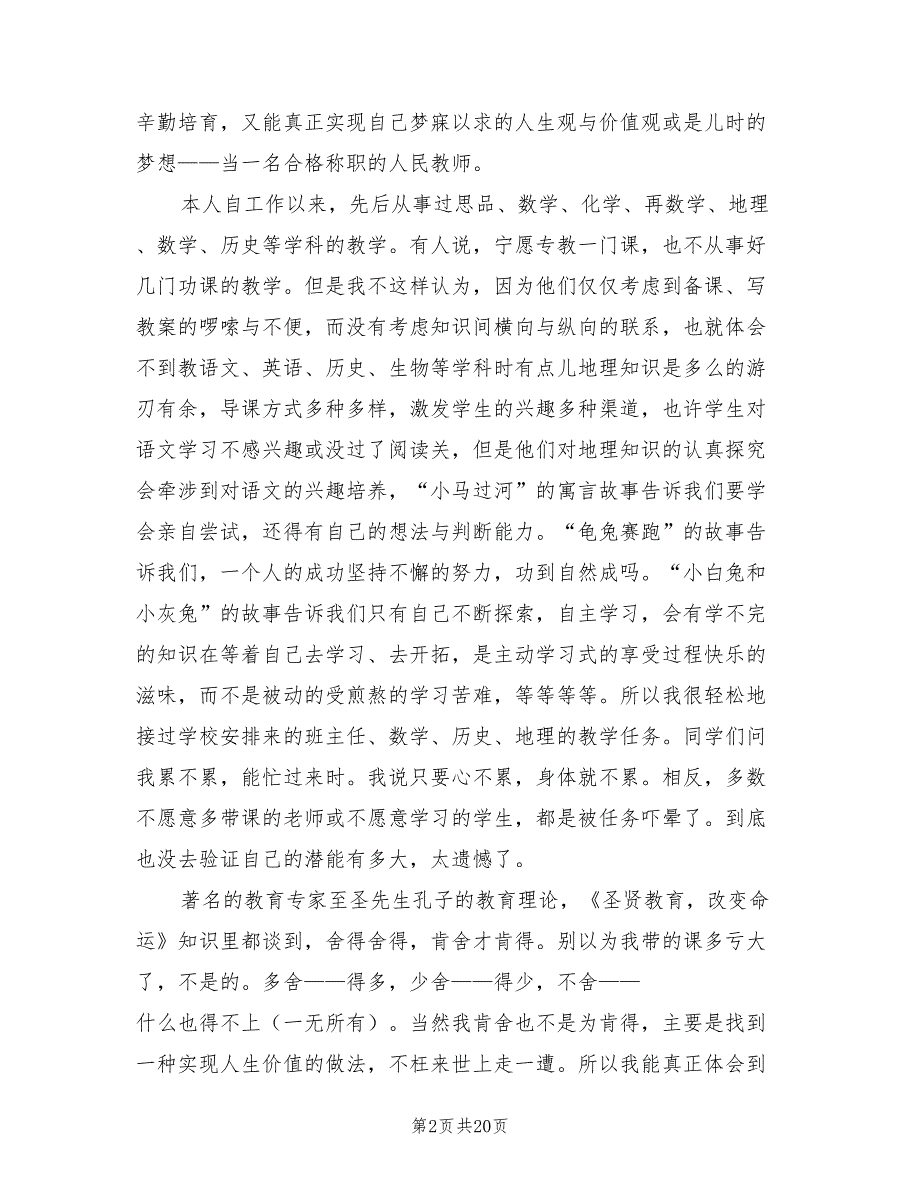 辛勤培育，又能真正实现自己梦寐以求的人生观与价值观或是儿时的
梦想——当一名合格称职的人民教师。
本人自工作以来，先后从事过思品、数学、化学、再数学、地理
、数学、历史等学科的教学。有人说，宁愿专教一门课，也不从事好
几门功课的教学。但是我不这样认为，因为他们仅仅考虑到备课、写
教案的啰嗦与不便，而没有考虑知识间横向与纵向的联系，也就体会
不到教语文、英语、历史、生物等学科时有点儿地理知识是多么的游
刃有余，导课方式多种多样，激发学生的兴趣多种渠道，也许学生对
语文学习不感兴趣或没过了阅读关，但是他们对地理知识的认真探究
会牵涉到对语文的兴趣培养，“小马过河”的寓言故事告诉我们要学
会亲自尝试，还得有自己的想法与判断能力。“龟兔赛跑”的故事告
诉我们，一个人的成功坚持不懈的努力，功到自然成吗。“小白兔和
小灰兔”的故事告诉我们只有自己不断探索，自主学习，会有学不完
的知识在等着自己去学习、去开拓，是主动学习式的享受过程快乐的
滋味，而不是被动的受煎熬的学习苦难，等等等等。所以我很轻松地
接过学校安排来的班主任、数学、历史、地理的教学任务。同学们问
我累不累，能忙过来时。我说只要心不累，身体就不累。相反，多数
不愿意多带课的老师或不愿意学习的学生，都是被任务吓晕了。到底
也没去验证自己的潜能有多大，太遗憾了。
著名的教育专家至圣先生孔子的教育理论，《圣贤教育，改变命
运》知识里都谈到，舍得舍得，肯舍才肯得。别以为我带的课多亏大
了，不是的。多舍——得多，少舍——得少，不舍——
什么也得不上（一无所有）。当然我肯舍也不是为肯得，主要是找到
一种实现人生价值的做法，不枉来世上走一遭。所以我能真正体会到
第2页共20页